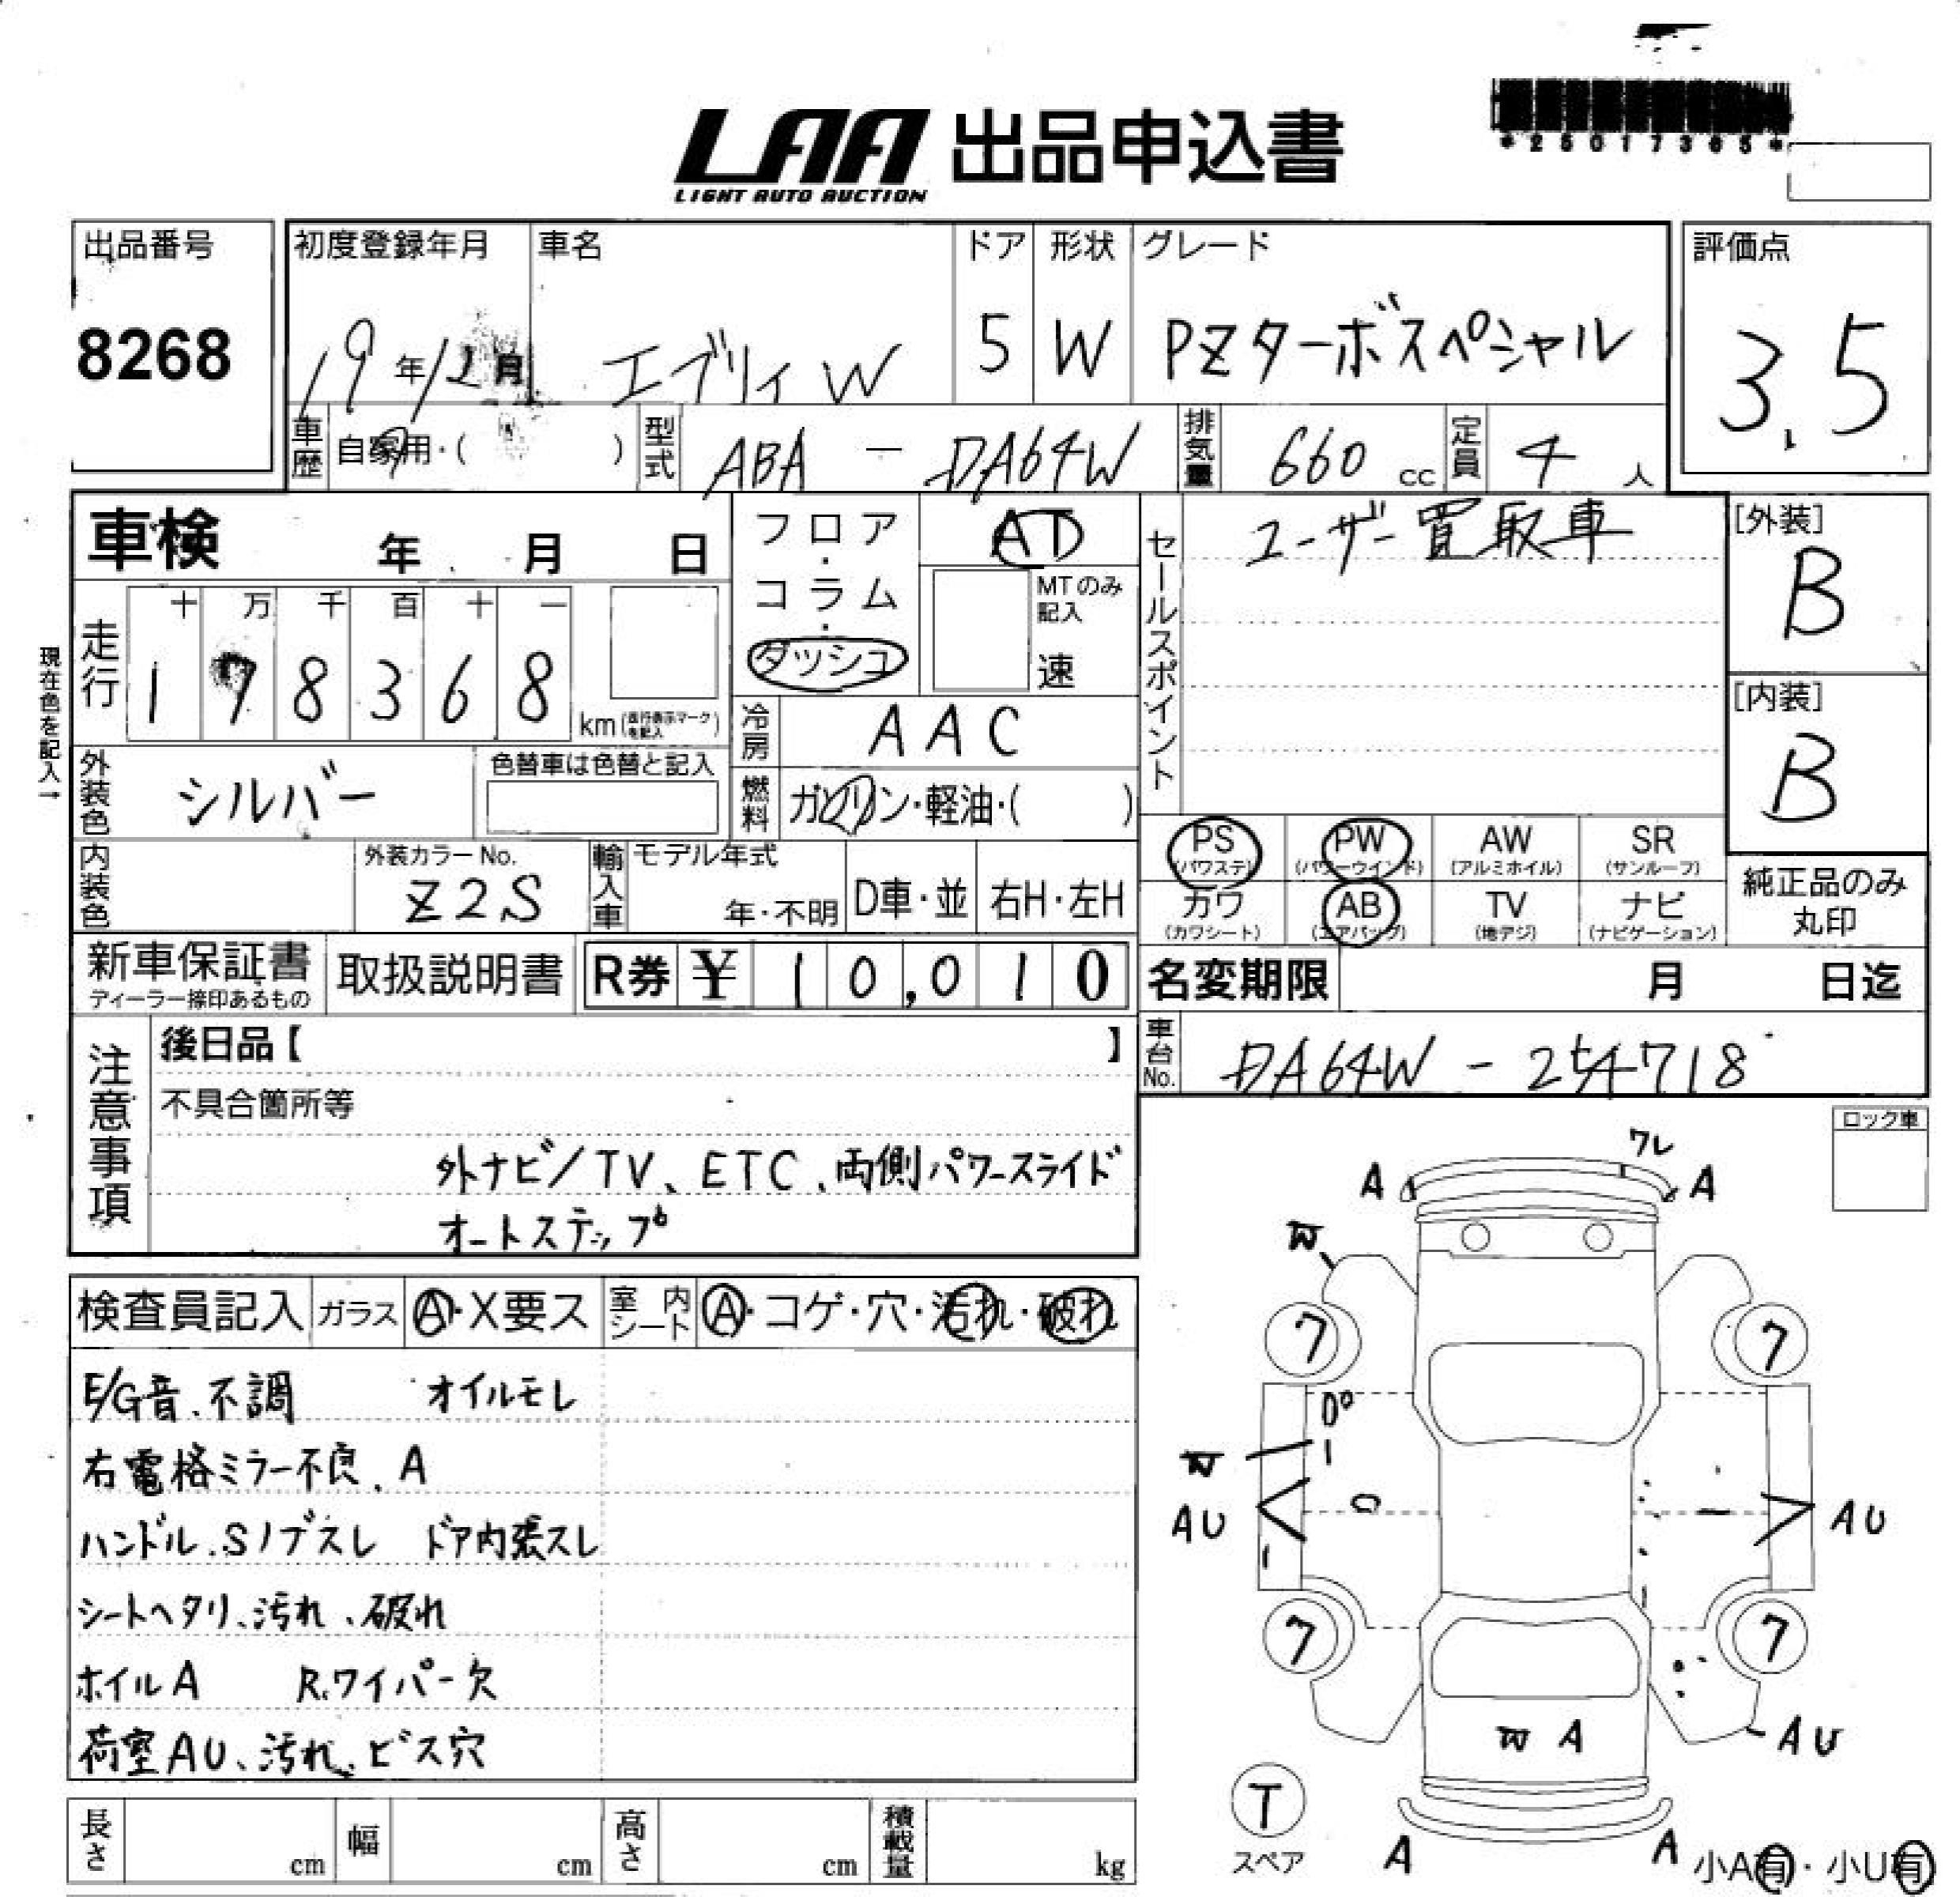 LAA 出品申込書
LIGHT AUTO AUCTION
*25017365*
出品番号
8268
初度登録年月
19年12月
車名
エブリィW
ドア
5
形状
W
グレード
PZターボスペシャル
評価点
3.5
車歴
自家用・( )
型式
ABA - DA64W
排気量
660 cc
定員
4 人
車検 年 月 日
フロア・コラム・ダッシュ
AT
MTのみ記入
速
セールスポイント
ユーザー買取車
[外装]
B
[内装]
B
現在色を記入→
走行
十 万 千 百 十 一
1 7 8 3 6 8 km(走行表示マークを記入)
冷房
AAC
外装色
シルバー
色替車は色替と記入
燃料
ガソリン・軽油・( )
内装色
外装カラーNo.
Z2S
輸入車
モデル年式
年・不明
D車・並
右H・左H
PS
(パワステ)
PW
(パワーウインド)
AW
(アルミホイル)
SR
(サンルーフ)
カワ
(カワシート)
AB
(エアバッグ)
TV
(地デジ)
ナビ
(ナビゲーション)
純正品のみ
丸印
新車保証書
ディーラー捺印あるもの
取扱説明書
R券 ¥ 10,010
名変期限 月 日迄
車台No.
DA64W - 254718
注意事項
後日品【 】
不具合箇所等
外ナビ/TV、ETC、両側パワースライド
オートステップ
ロック車
ワレ
A A
W
7 7
W
AU AU
7 7
W A
AU
T
スペア
A A
小A有・小U有
検査員記入
ガラス
A・X要ス
室内シート
A・コゲ・穴・汚れ・破れ
E/G音、不調 オイルモレ
右電格ミラー不良、A
ハンドル、Sノブスレ ドア内張スレ
シートヘタリ、汚れ、破れ
ホイルA R.ワイパー欠
荷室AU、汚れ、ビス穴
長さ cm
幅 cm
高さ cm
積載量 kg